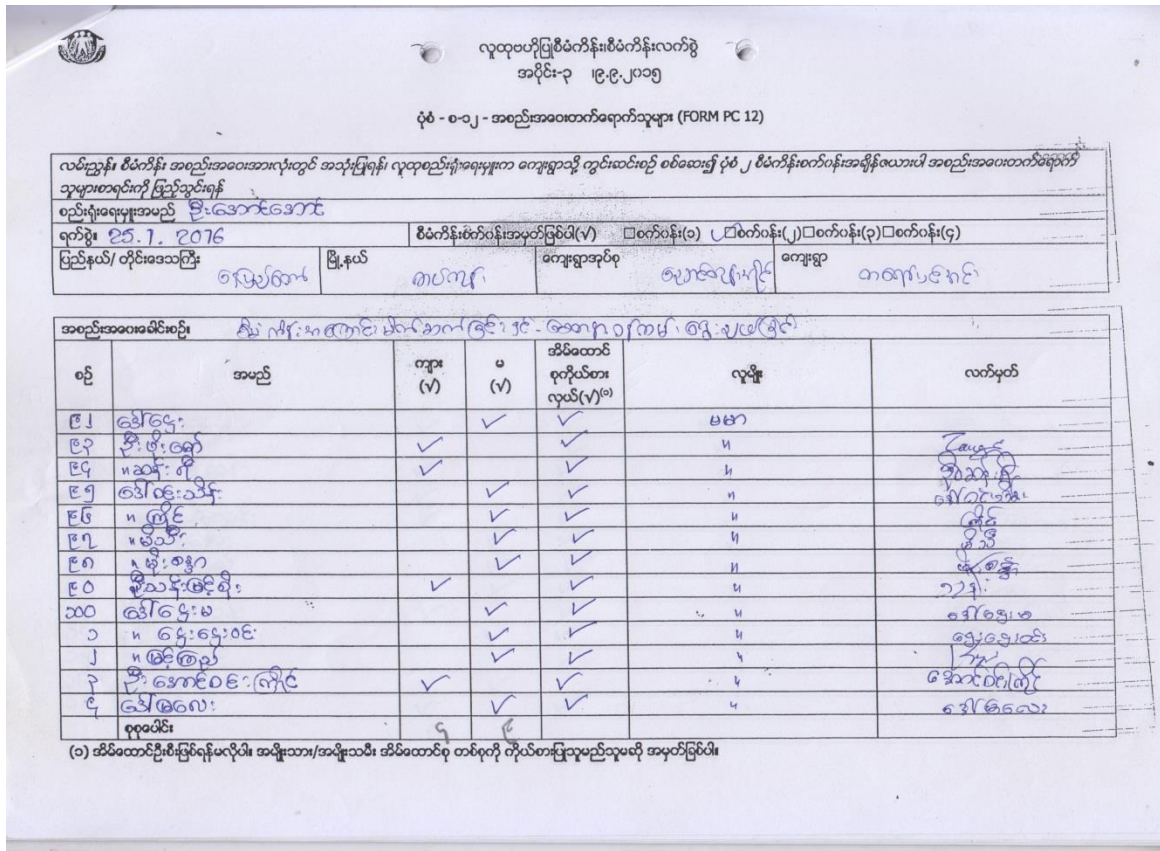 လူထုဗဟိုပြုစီမံကိန်း၊စီမံကိန်းလက်စွဲ
အပိုင်း-၃ ၊၉.၉.၂၀၁၅
ပုံစံ - စ-၁၂ - အစည်းအဝေးတက်ရောက်သူများ (FORM PC 12)
လမ်းညွှန်။ စီမံကိန်း အစည်းအဝေးအားလုံးတွင် အသုံးပြုရန်၊ လူထုစည်းရုံးရေးမှူးက ကျေးရွာသို့ ကွင်းဆင်းစဉ် စစ်ဆေး၍ ပုံစံ ၂ စီမံကိန်းစက်ဝန်းအချိန်ဇယားပါ အစည်းအဝေးတက်ရောက်
သူများစာရင်းကို ဖြည့်သွင်းရန်
စည်းရုံးရေးမှူးအမည် ဦးအောင်အောင်
ရက်စွဲ။ 25.1. 2016 စီမံကိန်းစက်ဝန်းအမှတ်ဖြစ်ပါ(√) □စက်ဝန်း(၁) ✓□စက်ဝန်း(၂)□စက်ဝန်း(၃)□စက်ဝန်း(၄)
ပြည်နယ်/ တိုင်းဒေသကြီး နေပြည်တော် မြို့နယ် တပ်ကုန်း ကျေးရွာအုပ်စု ကျေးရွာ
အစည်းအဝေးခေါင်းစဉ်။
စဉ် အမည် ကျား (√) မ (√) အိမ်ထောင်စုကိုယ်စားလှယ်(√)⁽¹⁾ လူမျိုး လက်မှတ်
၉၂ ဒေါ်ဌေး ✓ ✓ ဗမာ
၉၃ ဦးဖိုးရော် ✓ ✓ "
၉၄ " ဆန်းရီ ✓ ✓ "
၉၅ ဒေါ်ဝင်းသိန်း ✓ ✓ "
၉၆ " ကြိုင် ✓ ✓ " ကြိုင်
၉၇ " မိသီ ✓ ✓ " မိသီ
၉၈ " မိုးစန္ဒာ ✓ ✓ "
၉၀ ဦးသန်းမြင့်စိုး ✓ ✓ "
၁၀၀ ဒေါ်ဌေးမ ✓ ✓ " ဒေါ်ဌေးမ
၁ " ဌေးဌေးဝင်း ✓ ✓ " ဌေးဌေးဝင်း
၂ " မြင့်ကြည် ✓ ✓ "
၃ ဦးအောင်ဝင်းကြိုင် ✓ ✓ " အောင်ဝင်းကြိုင်
၄ ဒေါ်မြလေး ✓ ✓ " ဒေါ်မြလေး
စုစုပေါင်း ၄ ၉
(၁) အိမ်ထောင်ဦးစီးဖြစ်ရန်မလိုပါ။ အမျိုးသား/အမျိုးသမီး အိမ်ထောင်စု တစ်စုကို ကိုယ်စားပြုသူမည်သူမဆို အမှတ်ခြစ်ပါ။